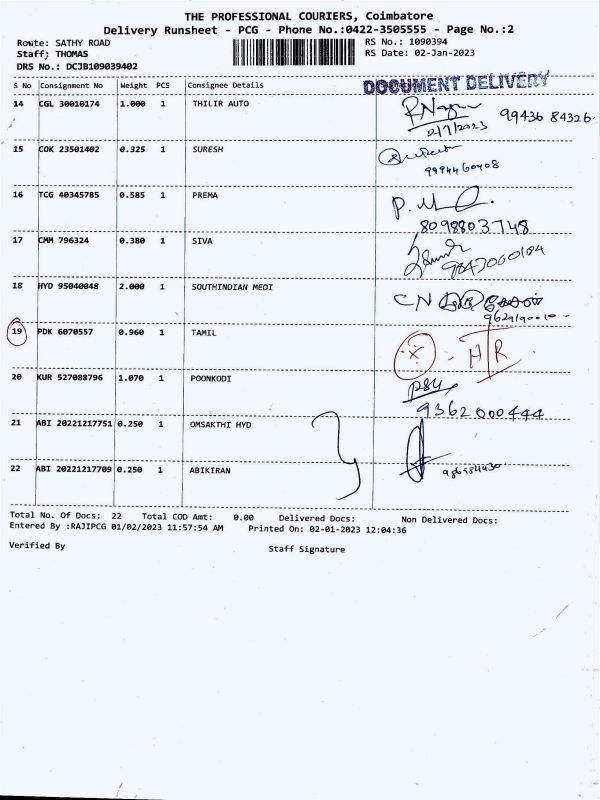 THE PROFESSIONAL COURIERS, Coimbatore
Delivery Runsheet - PCG - Phone No.:0422-3505555 - Page No.:2
Route: SATHY ROAD
RS No.: 1090394
Staff; THOMAS
RS Date: 02-Jan-2023
DRS No.: DCJB109039402
S No Consignment No Weight PCS Consignee Details
DOCUMENT DELIVERY
14 CGL 30010174 1.000 1 THILIR AUTO
99436 84326.
2/1/2023
15 COK 23501402 0.325 1 SURESH
9994460408
16 TCG 40345785 0.585 1 PREMA
8098803748
17 CMM 796324 0.380 1 SIVA
18 HYD 95040048 2.000 1 SOUTHINDIAN MEDI
19 PDK 6070557 0.960 1 TAMIL
20 KUR 527088796 1.070 1 POONKODI
9362000444
21 ABI 20221217751 0.250 1 OMSAKTHI HYD
22 ABI 20221217709 0.250 1 ABIKIRAN
Total No. Of Docs: 22 Total COD Amt: 0.00 Delivered Docs: Non Delivered Docs:
Entered By :RAJIPCG 01/02/2023 11:57:54 AM Printed On: 02-01-2023 12:04:36
Verified By
Staff Signature